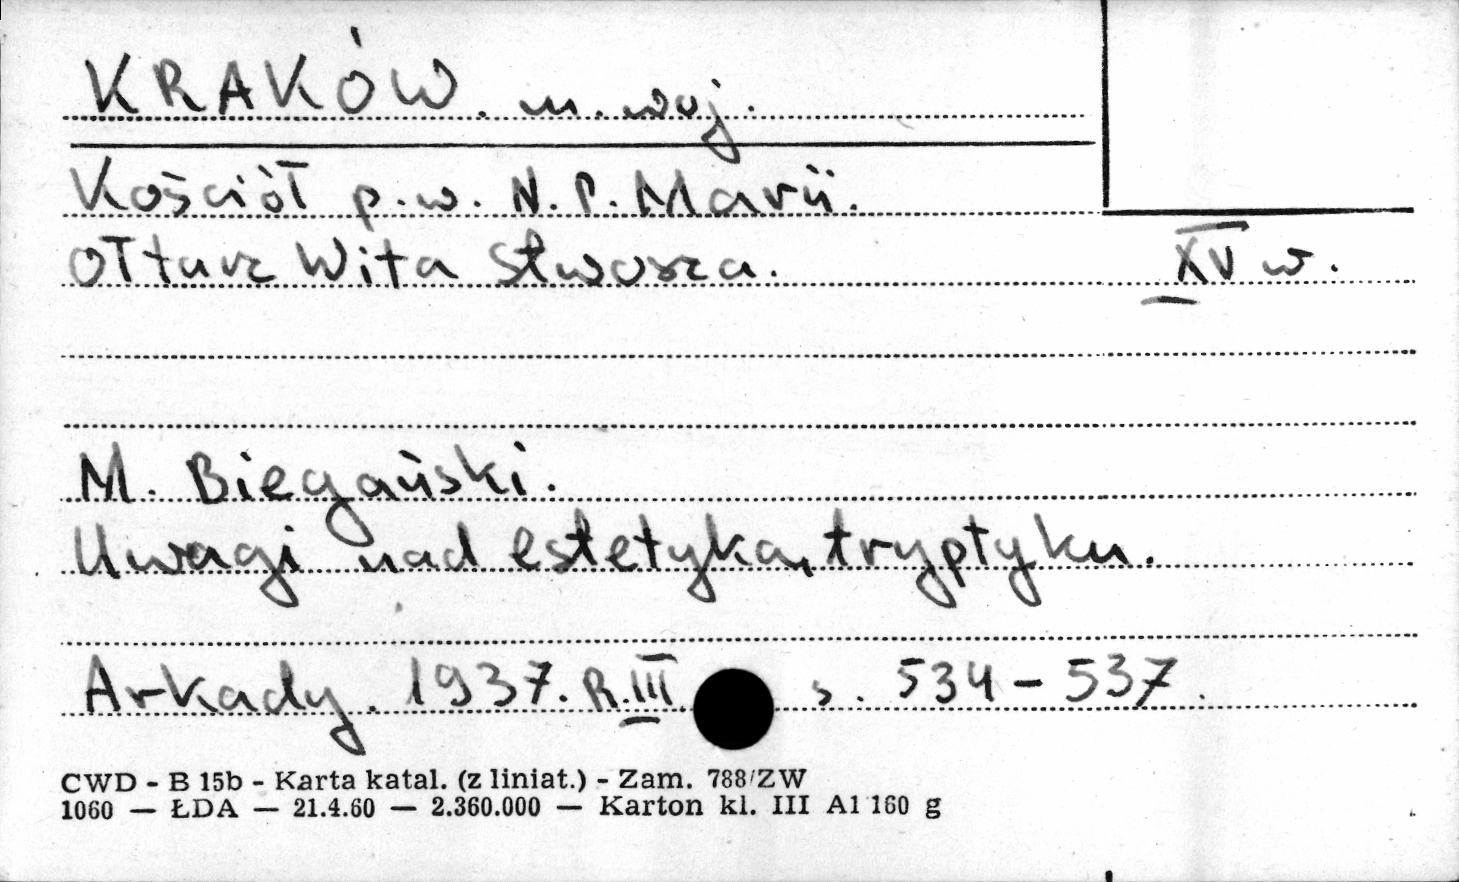 KRAKÓW. m. woj.
Kościół p.w. N.P. Marii.
Ołtarz Wita Stwosza. XV w.
M. Biegański.
Uwagi nad estetyką tryptyku.
Arkady. 1937. R.III. s. 534-537.
CWD - B 15b - Karta katal. (z liniat.) - Zam. 788/ZW
1060 — ŁDA — 21.4.60 — 2.360.000 — Karton kl. III A1 160 g